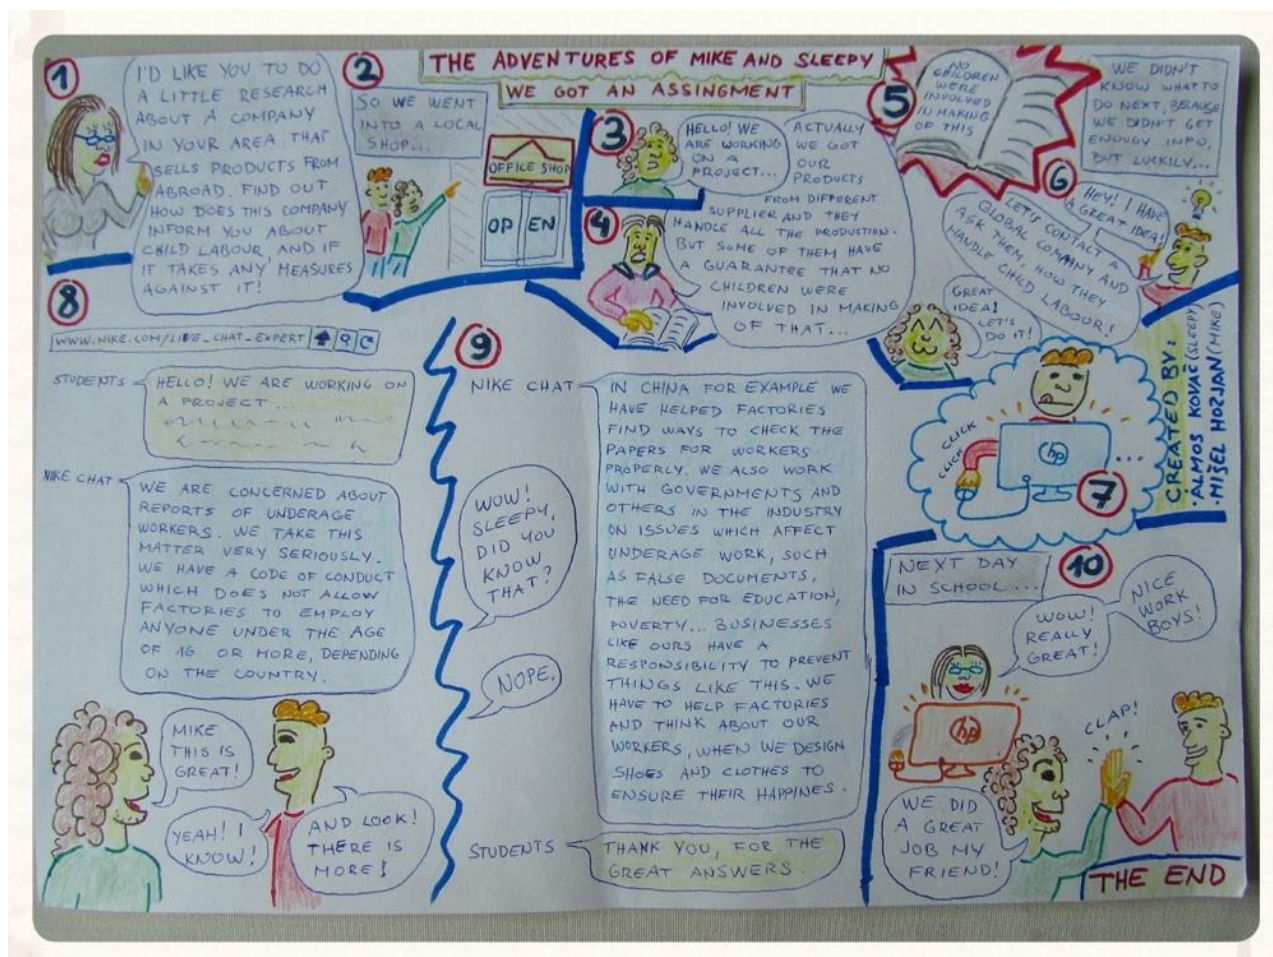 THE ADVENTURES OF MIKE AND SLEEPY
WE GOT AN ASSINGMENT
1
I'D LIKE YOU TO DO
A LITTLE RESEARCH
ABOUT A COMPANY
IN YOUR AREA THAT
SELLS PRODUCTS FROM
ABROAD. FIND OUT
HOW DOES THIS COMPANY
INFORM YOU ABOUT
CHILD LABOUR, AND IF
IT TAKES ANY MEASURES
AGAINST IT!
2
SO WE WENT
INTO A LOCAL
SHOP...
OFFICE SHOP
OPEN
3
HELLO! WE
ARE WORKING
ON A
PROJECT...
4
ACTUALLY
WE GOT
OUR
PRODUCTS
FROM DIFFERENT
SUPPLIER AND THEY
HANDLE ALL THE PRODUCTION.
BUT SOME OF THEM HAVE
A GUARANTEE THAT NO
CHILDREN WERE
INVOLVED IN MAKING
OF THAT...
5
NO
CHILDREN
WERE
INVOLVED
IN MAKING
OF THIS
WE DIDN'T
KNOW WHAT TO
DO NEXT, BECAUSE
WE DIDN'T GET
ENOUGY INFO,
BUT LUCKILY,...
6
HEY! I HAVE
A GREAT IDEA!
LET'S CONTACT A
GLOBAL COMPANY AND
ASK THEM, HOW THEY
HANDLE CHILD LABOUR!
GREAT
IDEA!
LET'S
DO IT!
CREATED BY:
·ALMOS KOVAČ (SLEEPY)
·MIŠEL HORJAN (MIKE)
7
CLICK
CLICK
hp
...
8
WWW.NIKE.COM/LIVE_CHAT_EXPERT
STUDENTS
HELLO! WE ARE WORKING ON
A PROJECT...
NIKE CHAT
WE ARE CONCERNED ABOUT
REPORTS OF UNDERAGE
WORKERS. WE TAKE THIS
MATTER VERY SERIOUSLY.
WE HAVE A CODE OF CONDUCT
WHICH DOES NOT ALLOW
FACTORIES TO EMPLOY
ANYONE UNDER THE AGE
OF 16 OR MORE, DEPENDING
ON THE COUNTRY.
MIKE
THIS IS
GREAT!
YEAH! I
KNOW!
AND LOOK!
THERE IS
MORE!
9
NIKE CHAT
IN CHINA FOR EXAMPLE WE
HAVE HELPED FACTORIES
FIND WAYS TO CHECK THE
PAPERS FOR WORKERS
PROPERLY. WE ALSO WORK
WITH GOVERNMENTS AND
OTHERS IN THE INDUSTRY
ON ISSUES WHICH AFFECT
UNDERAGE WORK, SUCH
AS FALSE DOCUMENTS,
THE NEED FOR EDUCATION,
POVERTY... BUSINESSES
LIKE OURS HAVE A
RESPONSIBILITY TO PREVENT
THINGS LIKE THIS. WE
HAVE TO HELP FACTORIES
AND THINK ABOUT OUR
WORKERS, WHEN WE DESIGN
SHOES AND CLOTHES TO
ENSURE THEIR HAPPINES.
WOW!
SLEEPY,
DID YOU
KNOW
THAT?
NOPE.
STUDENTS
THANK YOU, FOR THE
GREAT ANSWERS.
10
NEXT DAY
IN SCHOOL...
WOW!
REALLY
GREAT!
NICE
WORK
BOYS!
hp
CLAP!
WE DID
A GREAT
JOB MY
FRIEND!
THE END